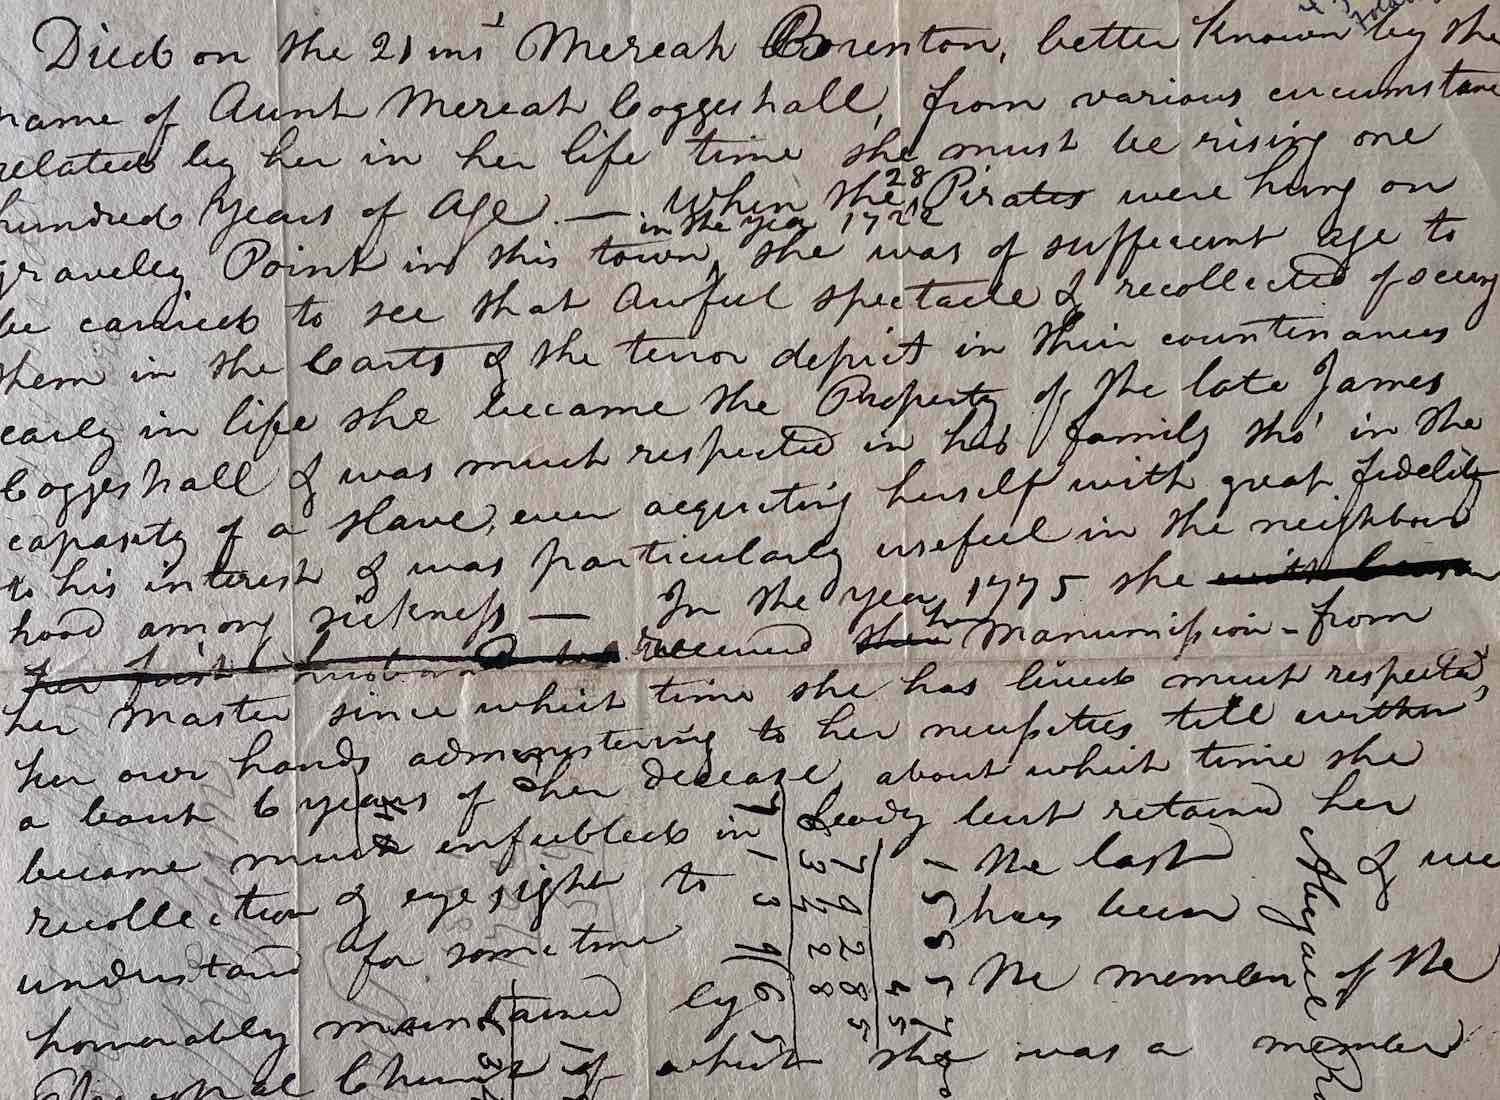 Died on the 21 inst Mereah Brenton, better known by the
name of Aunt Mereah Coggeshall, from various circumstance
related by her in her life time she must be rising one
hundred years of Age. — When the 28 Pirates were hung on
in the year 1722
graveley Point in this town, she was of sufficeunt age to
be carried to see that Awful spectacle & recollected of seeing
them in the Carts & the terror depict in their countinances
early in life she became the Property of the late James
Coggeshall & was much respected in his family tho' in the
capasity of a slave, ever acquiting herself with great fidelity
to his interest & was particularly useful in the neighbour
hood among sickness — In the year 1775 she
her first husband received her manumission - from
her master since which time she has lived much respected,
her own hands administering to her necessities till within
a bout 6 years of her decease, about which time she
became much enfeebled in body but retained her
recollection & eye sight to the last & we
understand for some time has been
honorably maintained by the member of the
Church of which she was a member
Abigail